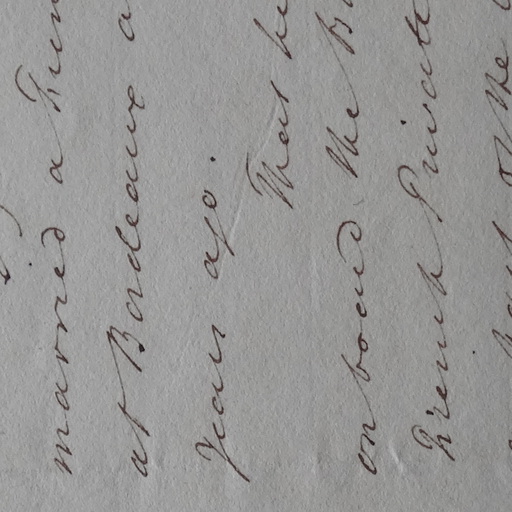 married a
at Bordeaux a
Year ago.
That he
on board the Br
French Privatee
of the